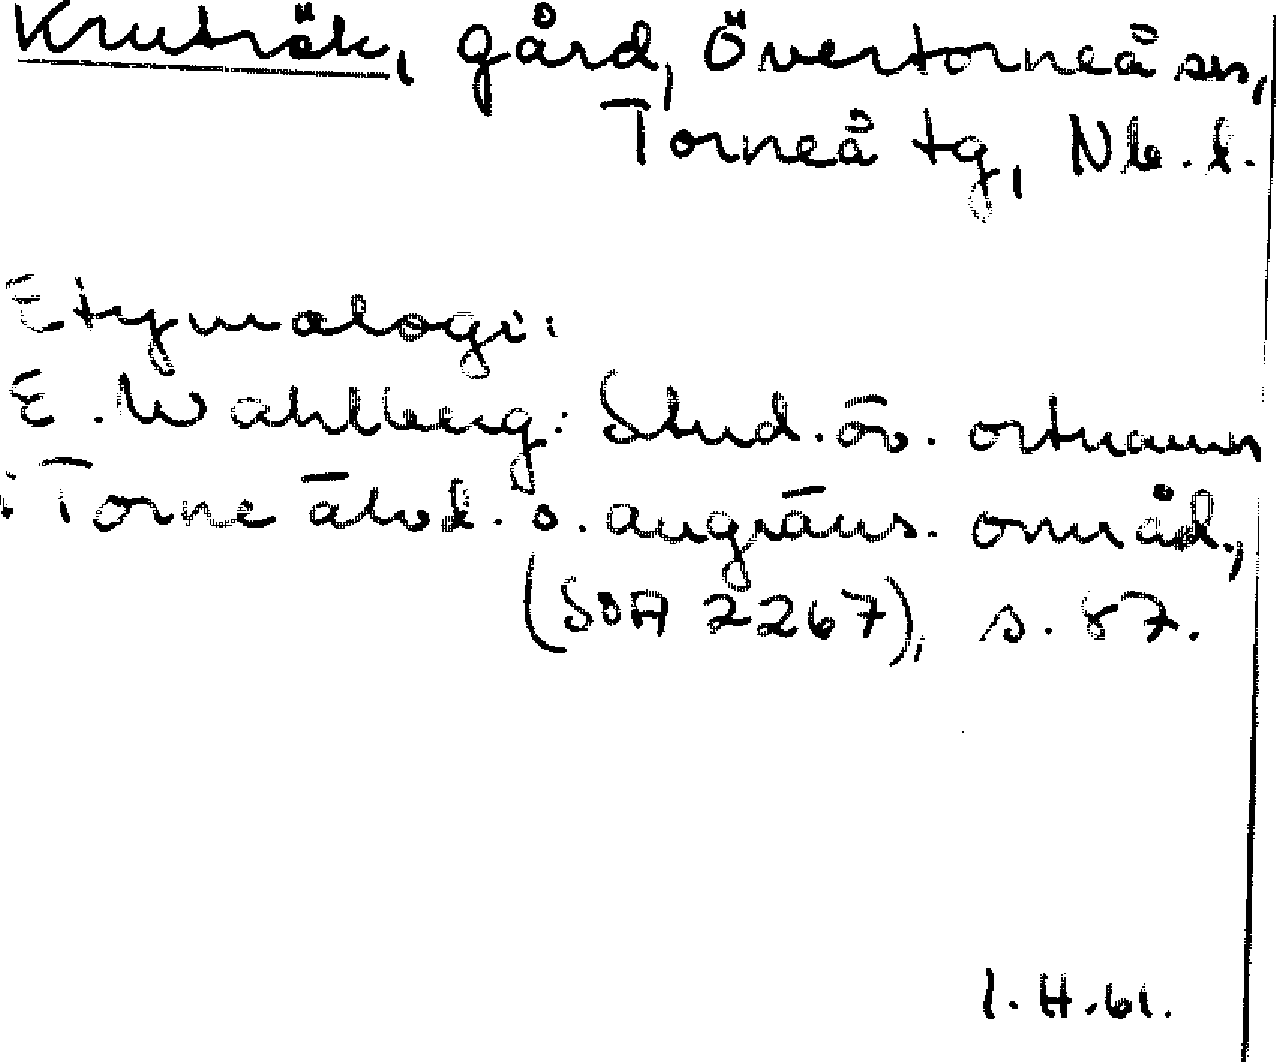 Kruträk, gård, Övertorneå sn,
Torneå tg, Nb. l.
Etymologi:
E. Wahlberg: Stud. öv. ortnamn
i Torne älvd. o. angräns. områd.,
(SOA 2267), s. 87.
I. H. 61.